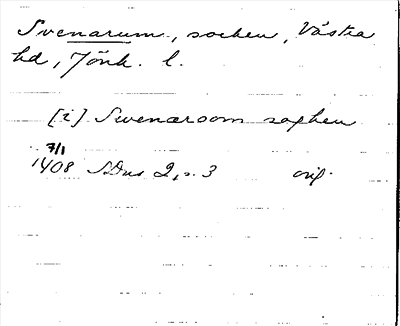 Svenarum, socken, Västra
hd, Jönk. l.
[i] Swenæroom soghen
7/1
1408 SDns 2, s. 3 orig.